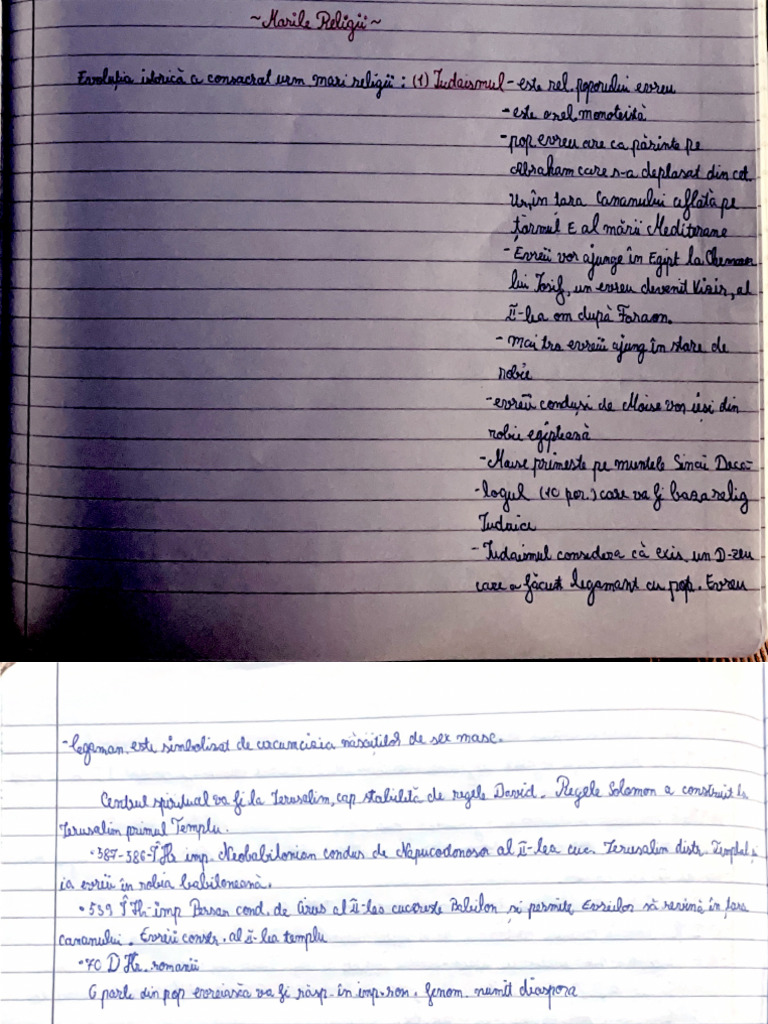 ~Marile Religii~
Evoluția istorică a consacrat urm mari religii : (1) Iudaismul - este rel. poporului evreu
- este o rel monoteistă
- pop evreu are ca părinte pe
Abraham care s-a deplasat din cet.
Ur, în tara Cananului aflată pe
țărmul E al mării Mediterane
- Evreii vor ajunge în Egipt la Chemarea
lui Iosif, un evreu devenit Vizir, al
II-lea om după Faraon.
- mai trz evreii ajung în stare de
robie
- evreii conduși de Moise vor ieși din
robie egipteană
- Moise primeste pe muntele Sinai Deca-
-logul (10 por.) care va fi baza relig
Iudaice
- Iudaismul considera că exis. un D-zeu
care a făcut legamant cu pop. Evreu
- legaman. este simbolizat de circumcizia născuților de sex masc.
Centrul spiritual va fi la Ierusalim, cap stabilită de regele David. Regele Solomon a construit la
Ierusalim primul Templu.
• 587-586 ÎH imp. Neobabilonian condus de Napucodonosor al II-lea cuc. Ierusalim distr. Templul și
ia evreii în robia babiloneană.
• 539 ÎH - imp Persan cond. de Cirus al II-lea cucereste Babilon și permite Evreilor să revină în țara
cananului. Evreii constr. al II-lea templu
• 70 D H. romanii
O parte din pop evreiască va fi răsp. în imp. rom. fenom. numit diaspora